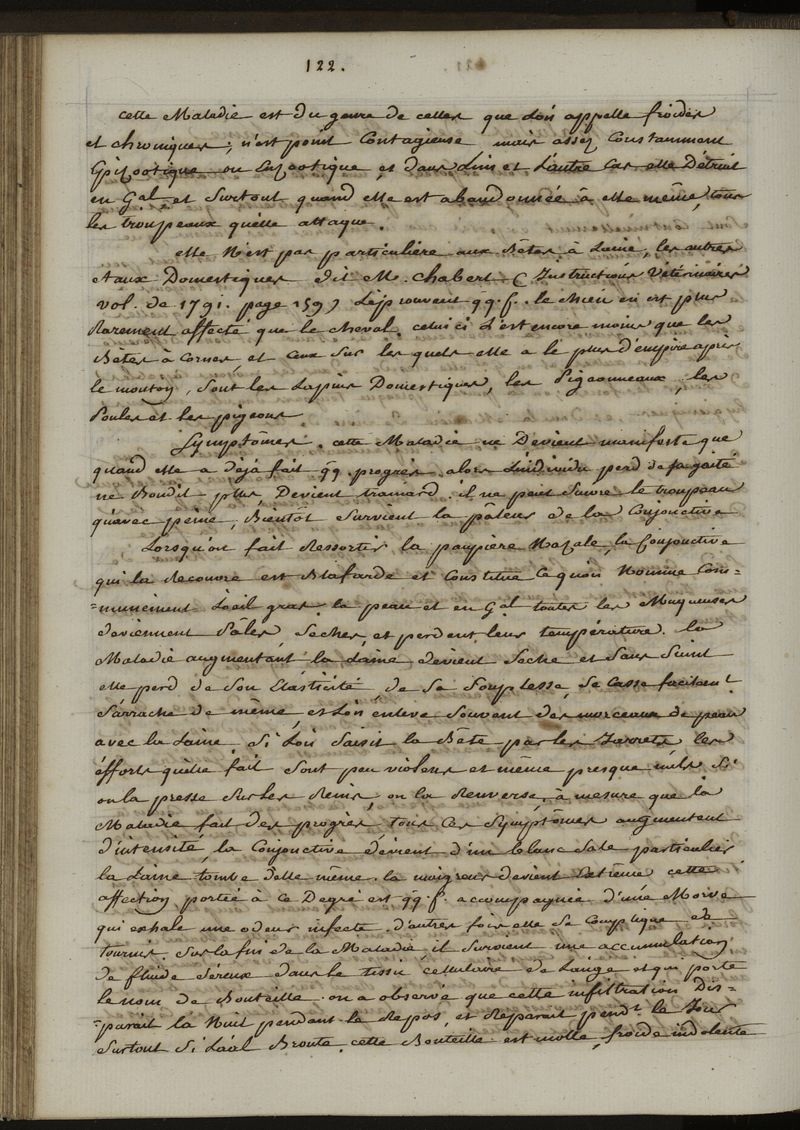 122.
cette Maladie est du genre de celles que lon appelle froides
et chroniques; n'est point Contagieuse mais assez Constamment
Epizootique ou Enzootique et dans Lun et L'autre Cas elle Détruit
en Gal. et Surtout quand elle est abandonnée à elle même, tous
les troupeaux quelle attaque.
elle N'est pas particulière aux Bêtes à Laine, les autres
etaux Domestiques dit M. Chabert (Instructions Vétérinaires
vol. de 1791. page 159) L'éprouvent qq. f. le chien en est plus
Rarement affecté que le cheval, celui ci L'est encore moins que les
Bêtes à Cornes, et Ceux Sur les quels elle a le plus d'empire après
le mouton, Sont les Lapins Domestiques, les Pigeonneaux, les
Poules et les pigeons
Symptômes. cette Maladie ne Devient manifeste que
quand elle a Déjà fait qq. progrès. alors L'individu perd de sa gaité
ne Bondit plus, Devient trainard, il ne peut Suivre le troupeau
qu'avec peine, Bientôt Survient la pâleur de la Conjonctive
Lorsqu'on fait Ressortir la paupière Nazale, la Conjonctive
qui la Recouvre est Blafarde et Constitue Ce qu'on Nomme Com=
=munément L'oeil gras. la peau et en Gal toutes les Muqueuses
deviennent Pâles, Seches, et perdent leur température. la
Maladie augmentant la Laine devient Seche et Sans Suint
elle perd de Son Elasticité, de Sa Souplesse, Se Casse facilemt.
S'arrache de même, et Lon enleve Souvent des morceaux de peau
avec la Laine. Si Lon Saisit la Bête par les Jarrets les
éfforts quelle fait Sont peu violens et même presque nuls Si
on la presse Sur les Reins, on la Renverse, à mesure que la
Maladie fait des progrès, tous Ces Symptômes augmentent
d'intensité, la Conjonctive devient d'un blanc Sale particulier
la Laine tombe d'elle même. la maigreur devient Extrême cette
affection portée à Ce Degré est qq. f. accompagnée d'une Morve
qui exhale une odeur infecte. d'autres fois elle Se Complique de
tournis. Sur la fin de la Maladie, il Survient une accumulation
de fluide Séreux dans le tissu cellulaire de L'auge et qui porte
le nom de Bouteille. on a observé que cette infiltration Dis=
=parait la Nuit pendant le Repos, et Reparait pendt. le Jour
Surtout Si L'aal Broute. cette Bouteille est molle, froide indolente